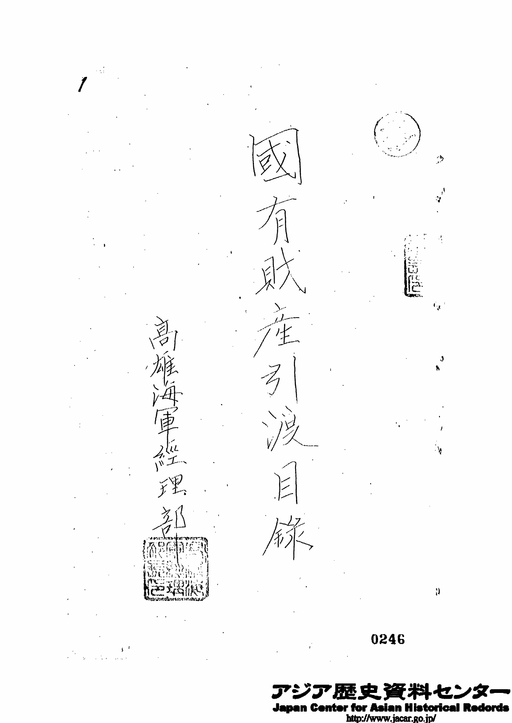 1
國有財産引渡目錄
高雄海軍經理部
0246
アジア歴史資料センター
Japan Center for Asian Historical Records
http://www.jacar.go.jp/